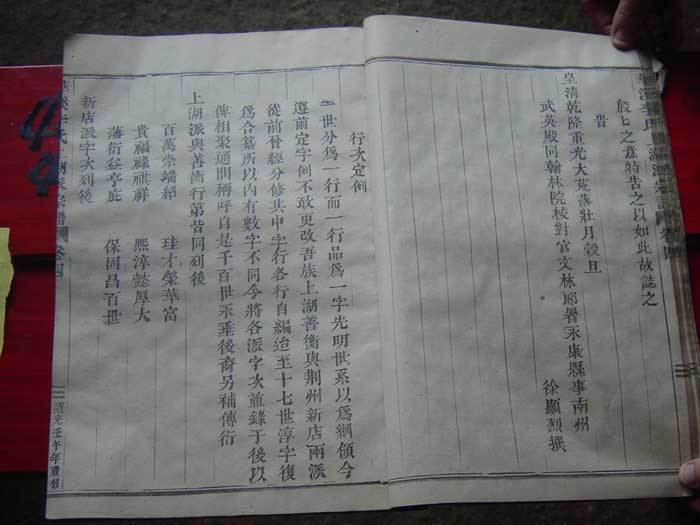 殷匕之意特告之以如此故誌之
旹
皇清乾隆重光大荒落壯月穀旦
武英殿同翰林院校對官文林郎署永康縣事南州
徐顯烈撰
行次定例
一世分爲一行而一行品爲一字先明世系以爲綱領今
遵前定字例不敢更改吾族上湖善衡與荆州新店兩派
從前曾經分修其中字行各行自編迨至十七世淳字復
爲合纂所以內有數字不同今將各派字次並錄于後以
俾相聚通問稱呼自是千百世永垂後裔另補傳衍
上湖派與善衡行第皆同列後
百萬崇端紹 珪才榮華富
貴福祿祺祥 熙淳懿厚大
藩衍益亨庇 保固昌百世
新店派字次列後
道光壬午年重修
44